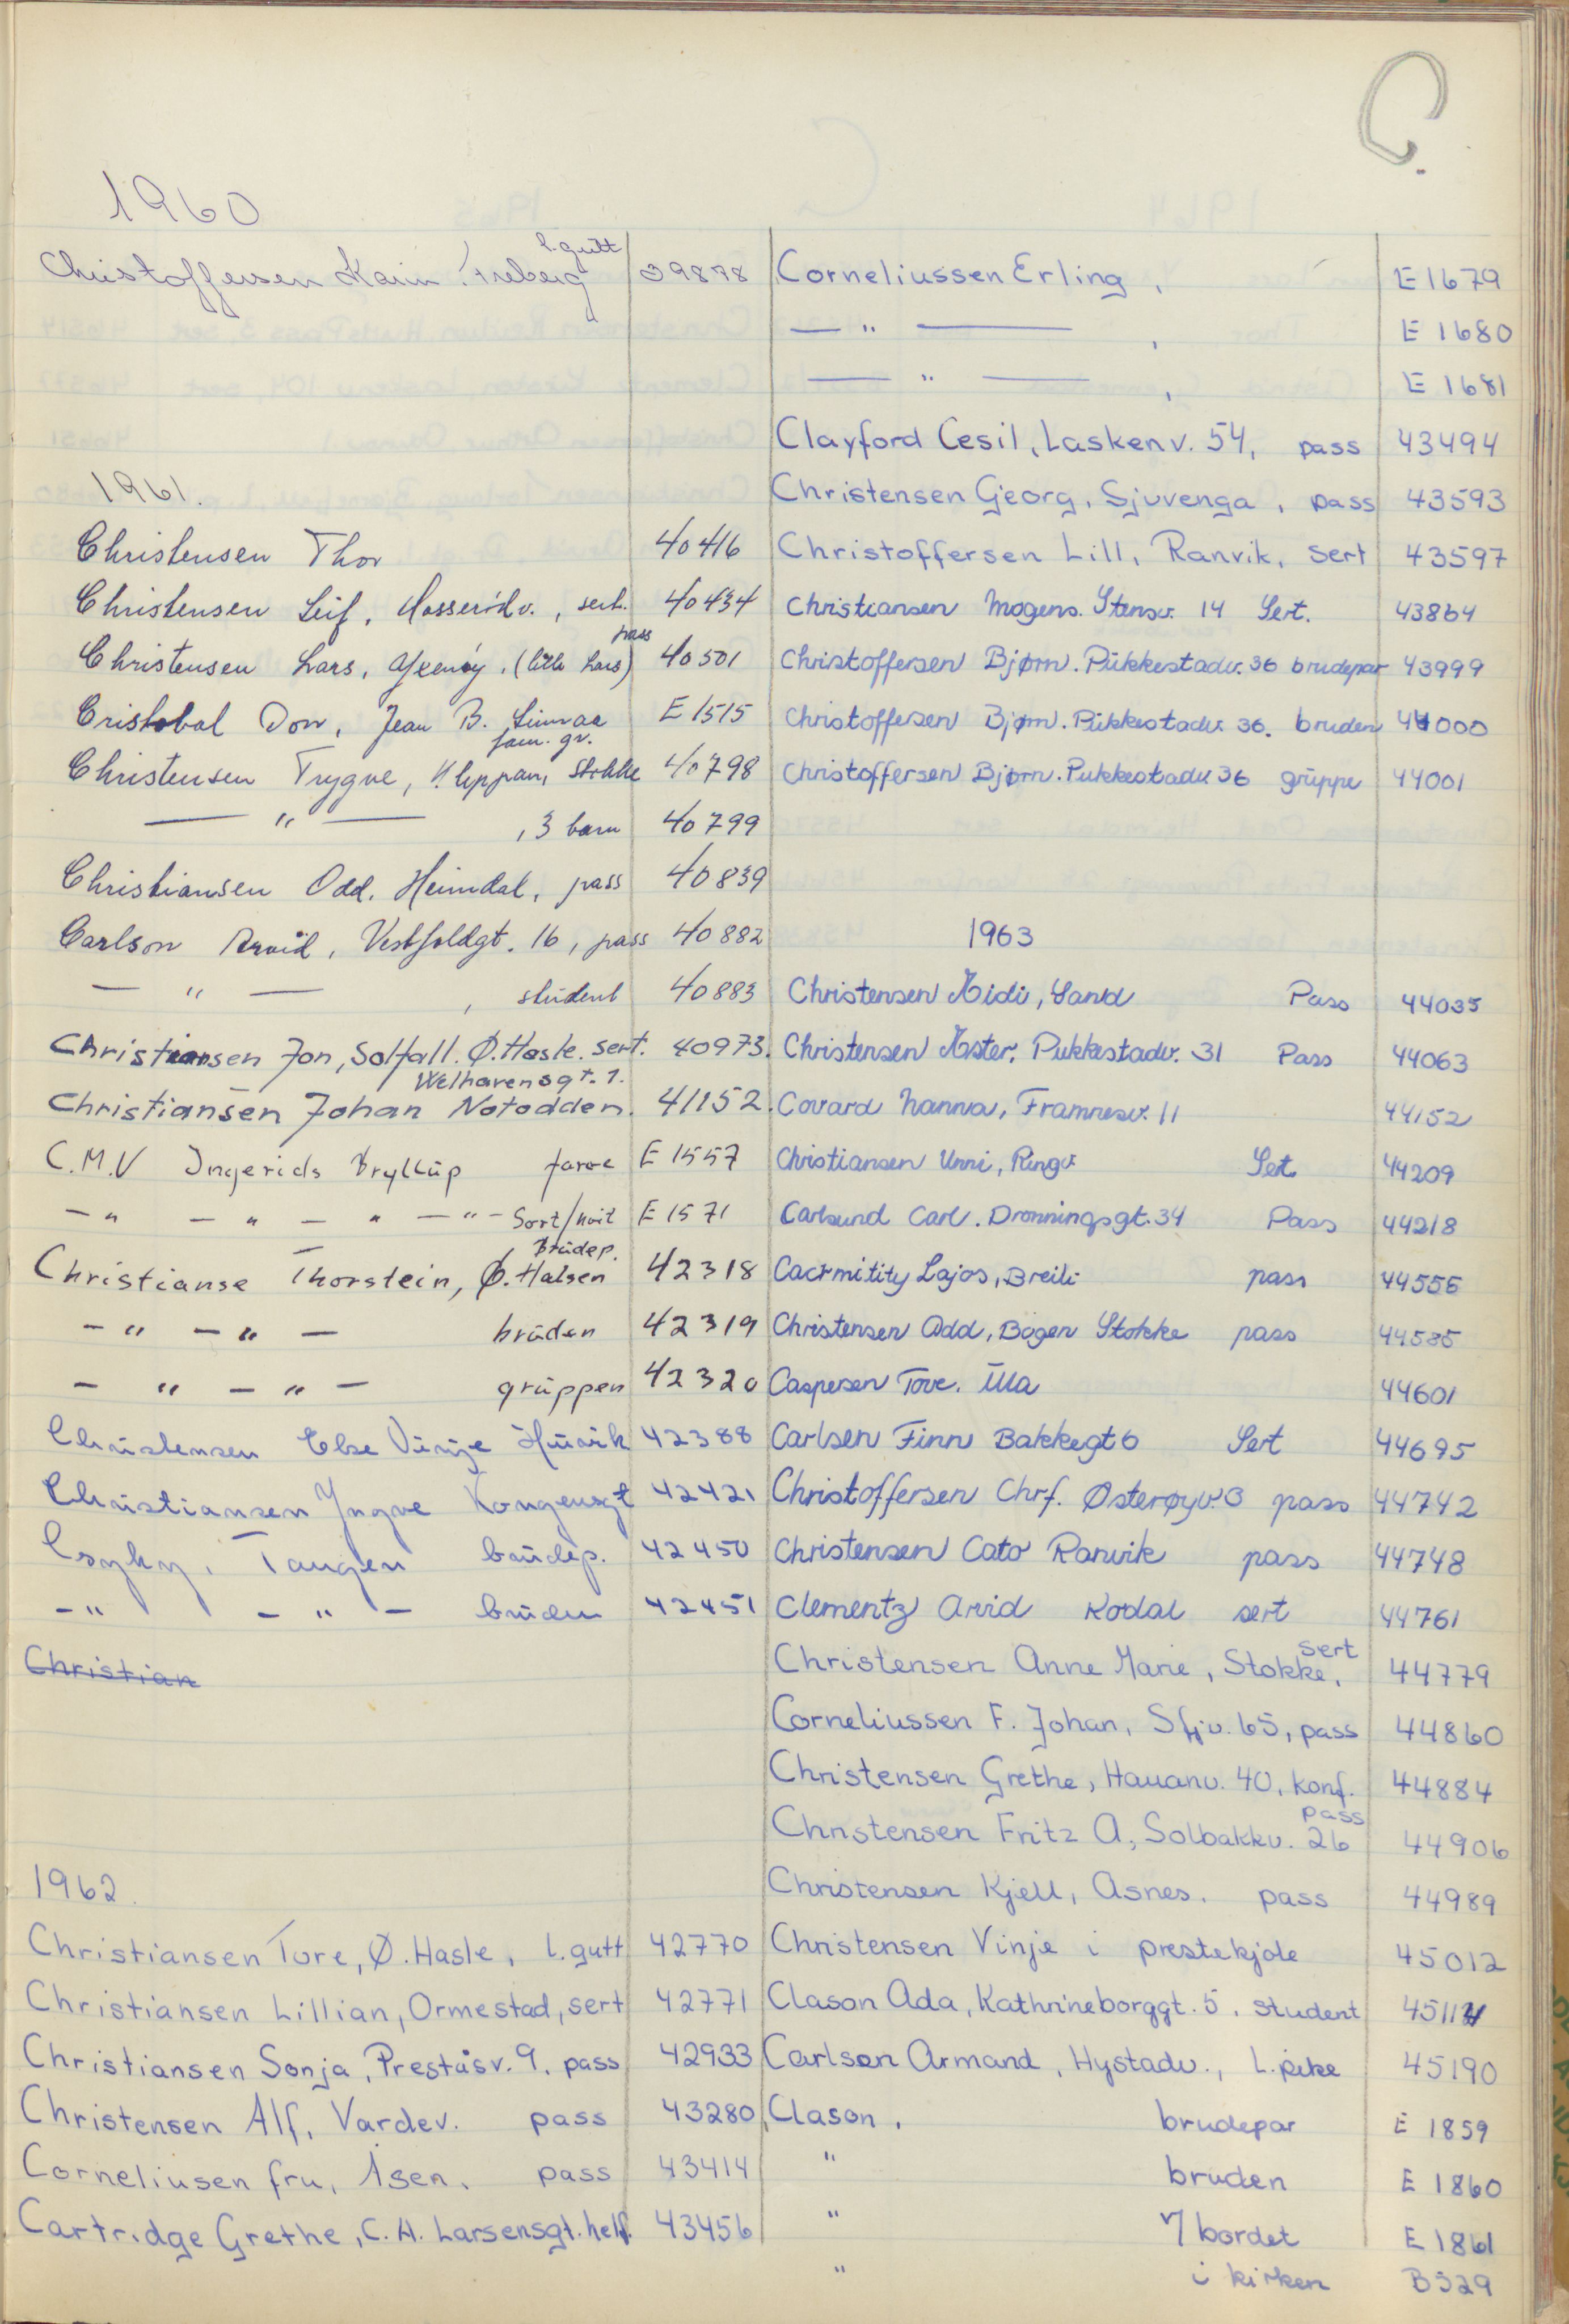 C.
1960
l. gutt
Christoffersen Karin Freberg 39878
1961.
Christensen Thor 40416
Christensen Leif, Mosserødv., sert. 40434
pass
Christensen Lars, (lille Lars) 40501
Cristobal Don, Jean B. Linnaa E 1515
fam. gr.
Christensen Trygve, Kleppan, Stokke 40798
— " — , 3 barn 40799
Christiansen Odd. Heimdal, pass 40839
Carlson Arvid, Vestfoldgt. 16, pass 40882
— " — , student 40883
Christiansen Jon, Solfall. Ø. Hasle. sert. 40973.
Welhavensgt. 1.
Christiansen Johan Notodden. 41152.
C.M.V Ingerids Bryllup farve E 1557
— " — " — " — " — Sort/hvit E 1571
Brudep.
Christianse Thorstein, Ø. Halsen 42318
— " — " — bruden 42319
— " — " — gruppen 42320
Christensen Else Vinje Husvik 42388
Christiansen Yngve Kongensgt 42421
Csyky, Tangen brudep. 42450
— " — " — bruden 42451
Christian
1962.
Christiansen Tore, Ø. Hasle, l. gutt 42770
Christiansen Lillian, Ormestad, sert 42771
Christiansen Sonja, Preståsv. 9. pass 42933
Christensen Alf, Vardev. pass 43280
Corneliusen fru, Åsen. pass 43414
Cartridge Grethe, C. A. Larsensgt. helf. 43456
Corneliussen Erling, E 1679
— " — , E 1680
— " — , E 1681
Clayford Cesil, Laskenv. 54, pass 43494
Christensen Georg, Sjuvenga, pass 43593
Christoffersen Lill, Ranvik, sert 43597
Christiansen Mogens. Stensv. 14 Sert. 43864
Christoffersen Bjørn. Pukkestadv. 36 brudepar 43999
Christoffersen Bjørn. Pukkestadv. 36. bruden 44000
Christoffersen Bjørn. Pukkestadv. 36 gruppe 44001
1963
Christensen Aidi, Sand Pass 44035
Christensen Aster, Pukkestadv. 31 Pass 44063
Covard Nanna, Framnesv. 11 44152
Christiansen Unni, Ringv. Sert. 44209
Carlsund Carl. Dronningsgt. 34 Pass 44218
Cacrmitity Lajos, Breili pass 44556
Christensen Odd, Bogen Stokke pass 44585
Caspersen Tove. Ula 44601
Carlsen Finn Bakkegt 6 Sert 44695
Christoffersen Chrf. Østerøyv. 3 pass 44742
Christensen Cato Ranvik pass 44748
Clementz Arvid Kodal sert 44761
sert
Christensen Anne Marie, Stokke, 44779
Corneliussen F. Johan, Sfjv. 65, pass 44860
Christensen Grethe, Hauanv. 40, konf. 44884
pass
Christensen Fritz A, Solbakkv. 26 44906
Christensen Kjell, Asnes. pass 44989
Christensen Vinje i prestekjole 45012
Clason Ada, Kathrineborggt. 5. student 45114
Carlsen Armand, Hystadv., L. pike 45190
Clason, brudepar E 1859
" bruden E 1860
" v/ bordet E 1861
" i kirken B 329